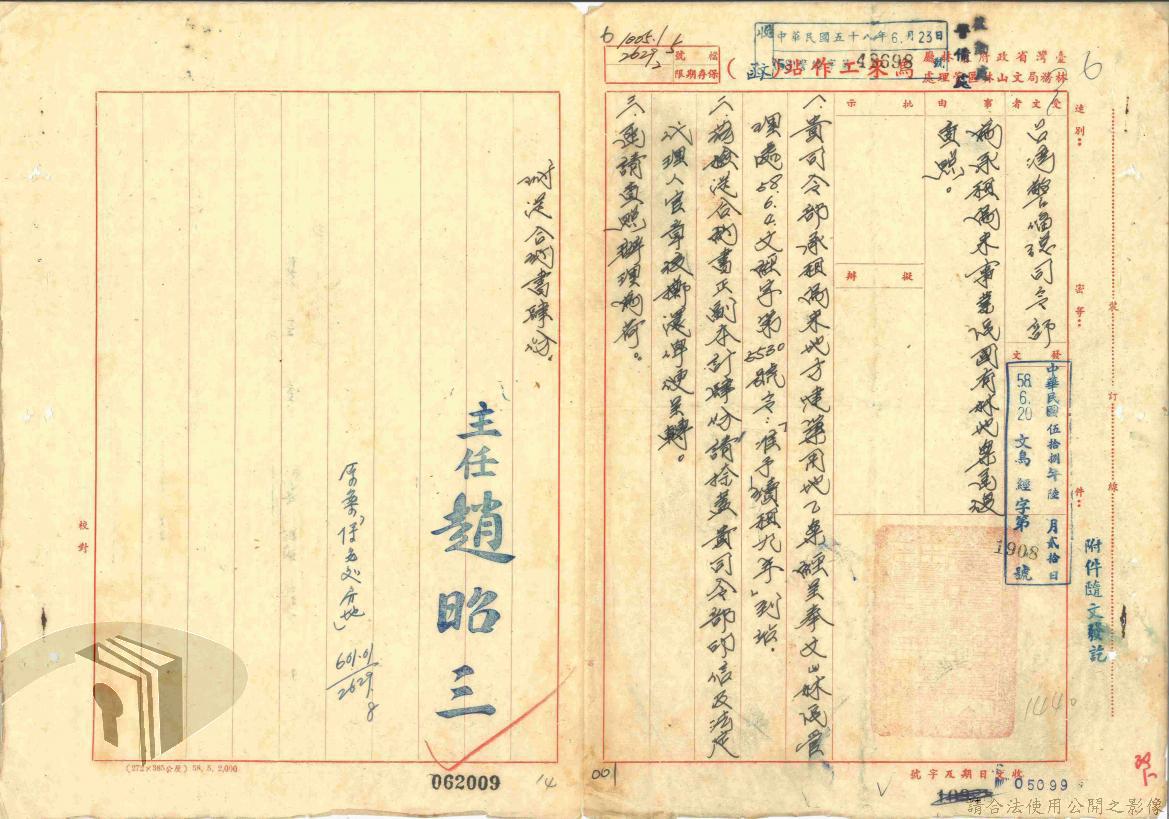 6
1005.1
2629
檔號
保存期限
收 中華民國五十八年6月23日
字第 48698 號
臺灣省政府農林廳
林務局文山林區管理處
烏來工作站(函)
警備處
6
受文者
台灣警備總司令部
速別:
密等:
附件:
裝
訂
線
事由
為承租烏來事業區國有林地案函復
查照。
批示
擬辦
發文
中華民國伍拾捌年陸月貳拾日
58.6.20 文烏經字第1908號
附件隨文發訖
一、貴司令部承租烏來地方建築用地乙案經呈奉文山林區管
理處58.6.4.文經字第5530號令:「准予續租九年」到站。
二、茲檢送合約書正副本計肆份請捺蓋貴司令部印信及法定
代理人官章後擲還俾便呈轉。
三、函請查照辦理為荷。
附送合約書肆份。
主任 趙昭三
601.01
2629
8
校對
(272×385公厘) 58. 5. 2,000
062009
14
001
1440
收文日期及字號
05099
請合法使用公開之影像